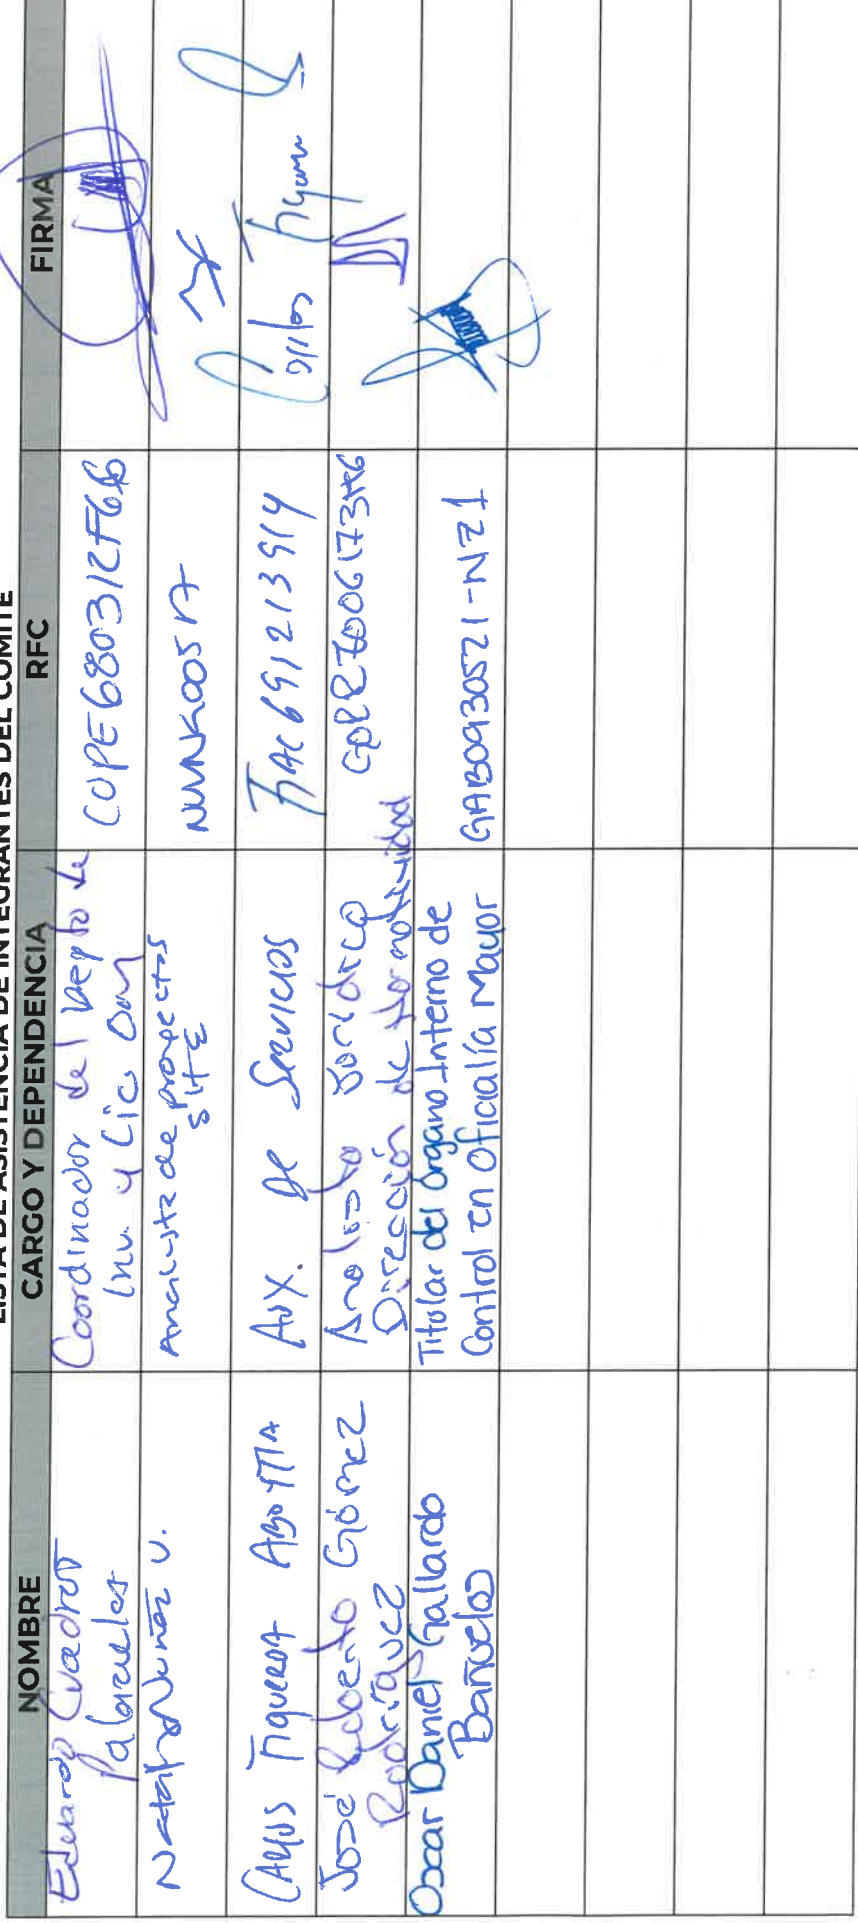 LISTA DE ASISTENCIA DE INTEGRANTES DEL COMITÉ
NOMBRE CARGO Y DEPENDENCIA RFC FIRMA
Eduardo Cuadros
Palazuelos
Coordinador del Depto de
Inv. y Lic Om
CUPE680312F66
Natalia Nuñez V.
Analista de proyectos
NUVNK005 A
CARLOS FIGUEROA ABOYTIA
AUX. DE SERVICIOS
FIAC691213914
Carlos Figueroa
José Roberto Gómez
Rodríguez
Analista Jurídico
Dirección de Normatividad
GORR7006173H6
Oscar Daniel Gallardo
Bañuelos
Titular del Órgano Interno de
Control en Oficialía Mayor
GABO930521-NZ1